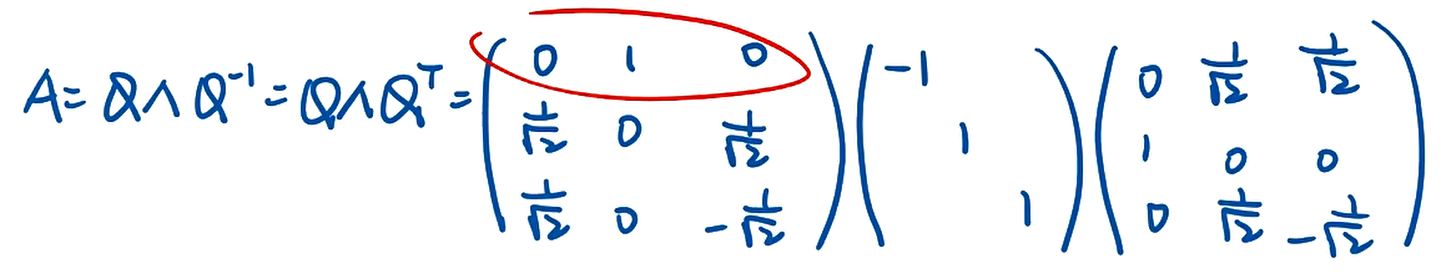 A = QΛQ⁻¹ = QΛQᵀ = \begin{pmatrix} 0 & 1 & 0 \\ \frac{1}{\sqrt{2}} & 0 & \frac{1}{\sqrt{2}} \\ \frac{1}{\sqrt{2}} & 0 & -\frac{1}{\sqrt{2}} \end{pmatrix} \begin{pmatrix} -1 & & \\ & 1 & \\ & & 1 \end{pmatrix} \begin{pmatrix} 0 & \frac{1}{\sqrt{2}} & \frac{1}{\sqrt{2}} \\ 1 & 0 & 0 \\ 0 & \frac{1}{\sqrt{2}} & -\frac{1}{\sqrt{2}} \end{pmatrix}